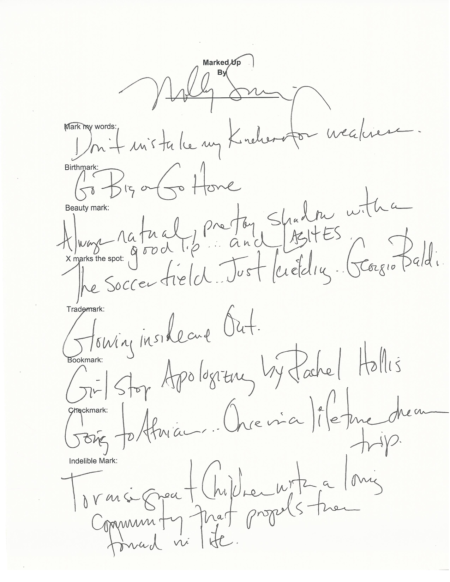 Marked Up
By
Molly
Mark my words:
Don't mistake my kindness for weakness.
Birthmark:
Go Big or Go Home
Beauty mark:
Always natural, pretty shadow with a
good lip... and LASHES.
X marks the spot:
The soccer field.. Just kidding.. Georgio Baldi.
Trademark:
Glowing inside and Out.
Bookmark:
Girl Stop Apologizing by Rachel Hollis
Checkmark:
Going to African... Once in a lifetime dream
trip.
Indelible Mark:
To raise great Children with a loving
community that propels them
forward in life.